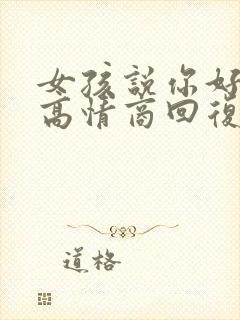 女孩說你好
高情商回復
道格